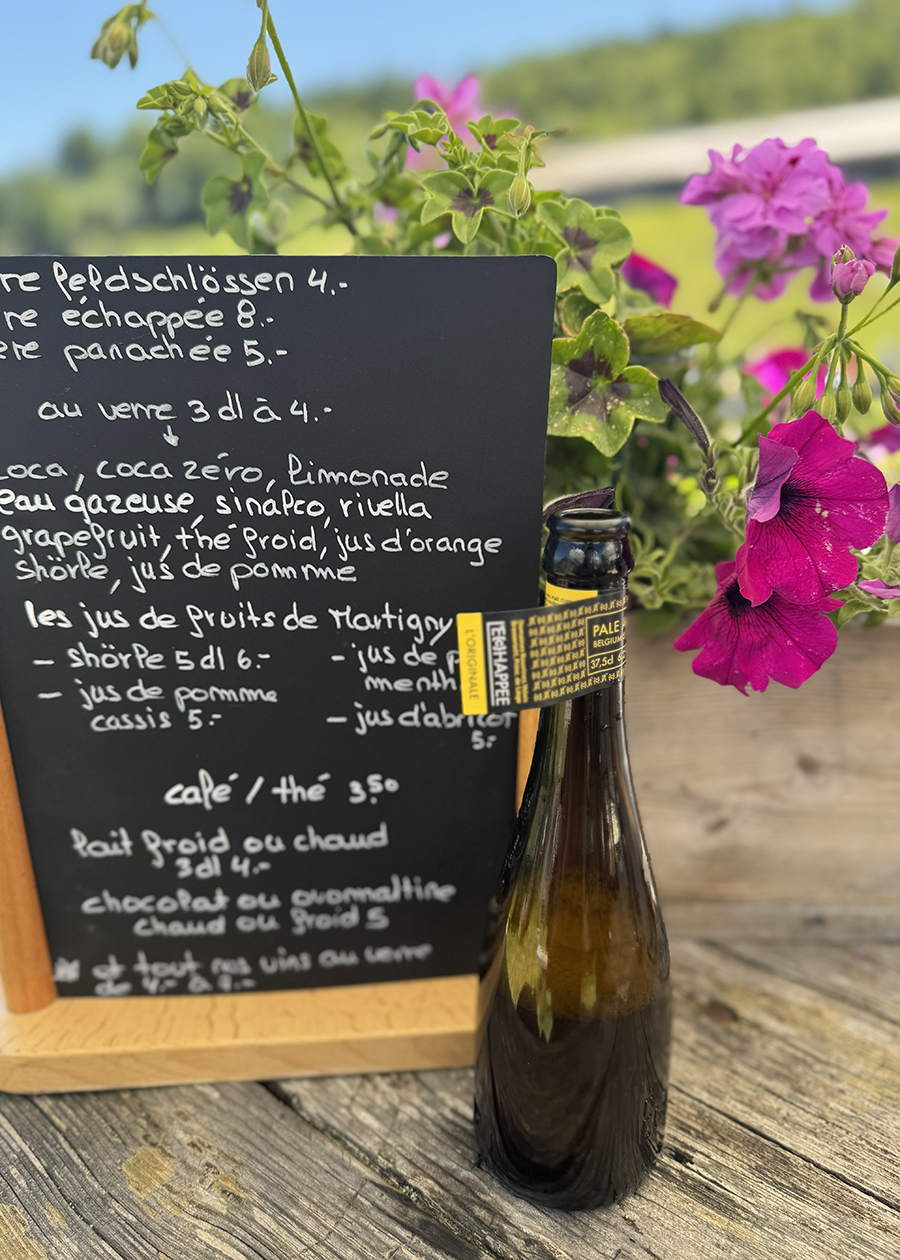 re feldschlössen 4.-
re échappée 8.-
ère panachée 5.-
au verre 3 dl à 4.-
coca, coca zéro, limonade
eau gazeuse, sinalco, rivella
grapefruit, thé froid, jus d'orange
shörle, jus de pommme
les jus de fruits de Martigny
- shörle 5 dl 6.- - jus de p
- jus de pommme menth
cassis 5.- - jus d'abricot
5.-
café / thé 3.50
lait froid ou chaud
3dl 4.-
chocolat ou ovommaltine
chaud ou froid 5
et tout nos vins au verre
de 4.- à 7.-
L'ORIGINALE
L'ÉCHAPPÉE
PALE
BELGIUM
37,5cl